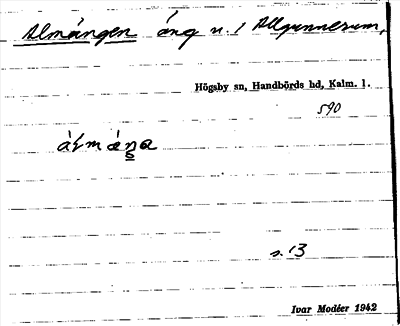 Almängen äng n. 1 Allgunnerum,
Högsby sn, Handbörds hd, Kalm. l.
590
s. 13
Ivar Modéer 1942